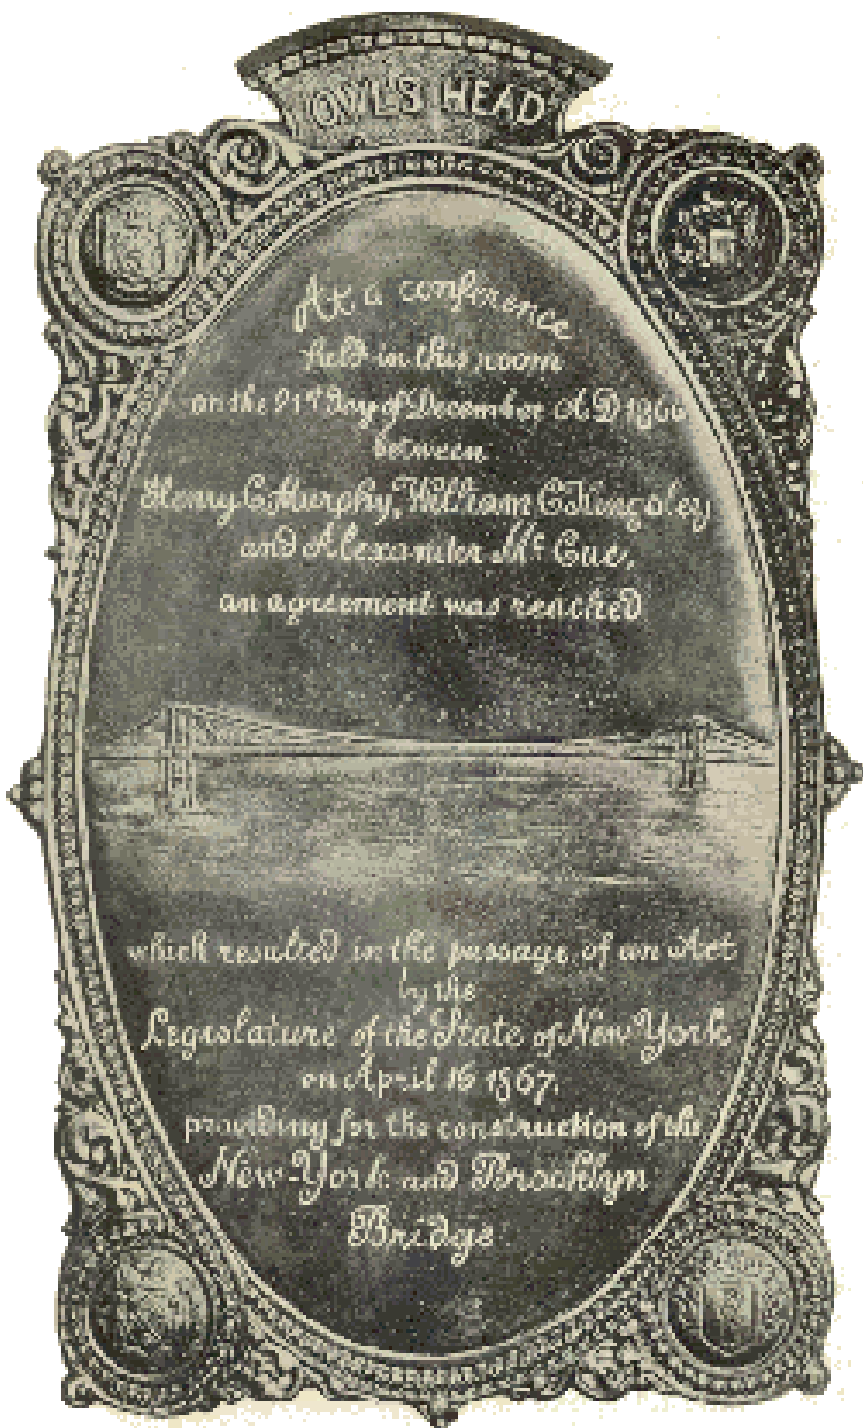 OWL'S HEAD
At a conference
held in this room
on the 21st day of December A.D 1866
between
Henry C Murphy, William C Kingsley
and Alexander Mc Cue,
an agreement was reached
which resulted in the passage of an Act
by the
Legislature of the State of New York
on April 16 1867,
providing for the construction of the
New-York and Brooklyn
Bridge